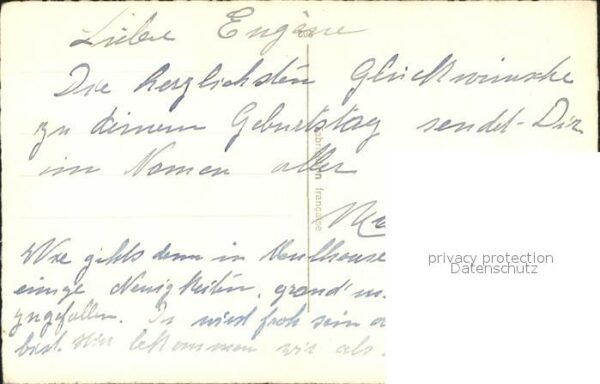 Liebe Eugène
Die herzlichsten Glückwünsche
zu deinem Geburtstag sendet Dir
im Namen aller
Fabrication française
Wie gehts denn in Mulhouse
einige Neuigkeiten, grand'm.
zugefallen. Du wird froh sein
bist. Wir bekommen wir als
privacy protection
Datenschutz